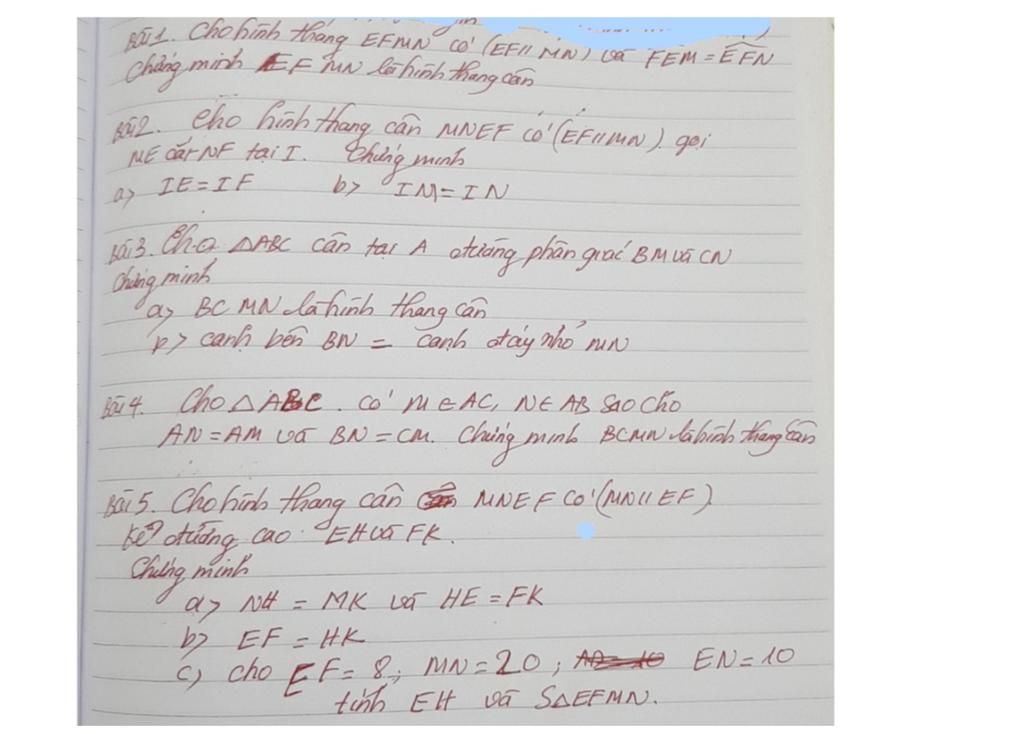 Bài 1. Cho hình thang EFMN có (EF // MN) và FEM = EFN
Chứng minh EFMN là hình thang cân
Bài 2. Cho hình thang cân MNEF có (EF // MN). gọi
ME cắt NF tại I. Chứng minh
a> IE = IF b> IM = IN
Bài 3. Cho △ABC cân tại A đường phân giác BM và CN
Chứng minh
a> BCMN là hình thang cân
b> cạnh bên BN = cạnh đáy nhỏ MN
Bài 4. Cho △ABC. có M ∈ AC, N ∈ AB sao cho
AN = AM và BN = CM. Chứng minh BCMN là hình thang cân
Bài 5. Cho hình thang cân MNEF có (MN // EF)
kẻ đường cao EH và FK.
Chứng minh
a> NH = MK và HE = FK
b> EF = HK
c) cho EF = 8; MN = 20; EN = 10
tính EH và S△EFMN.